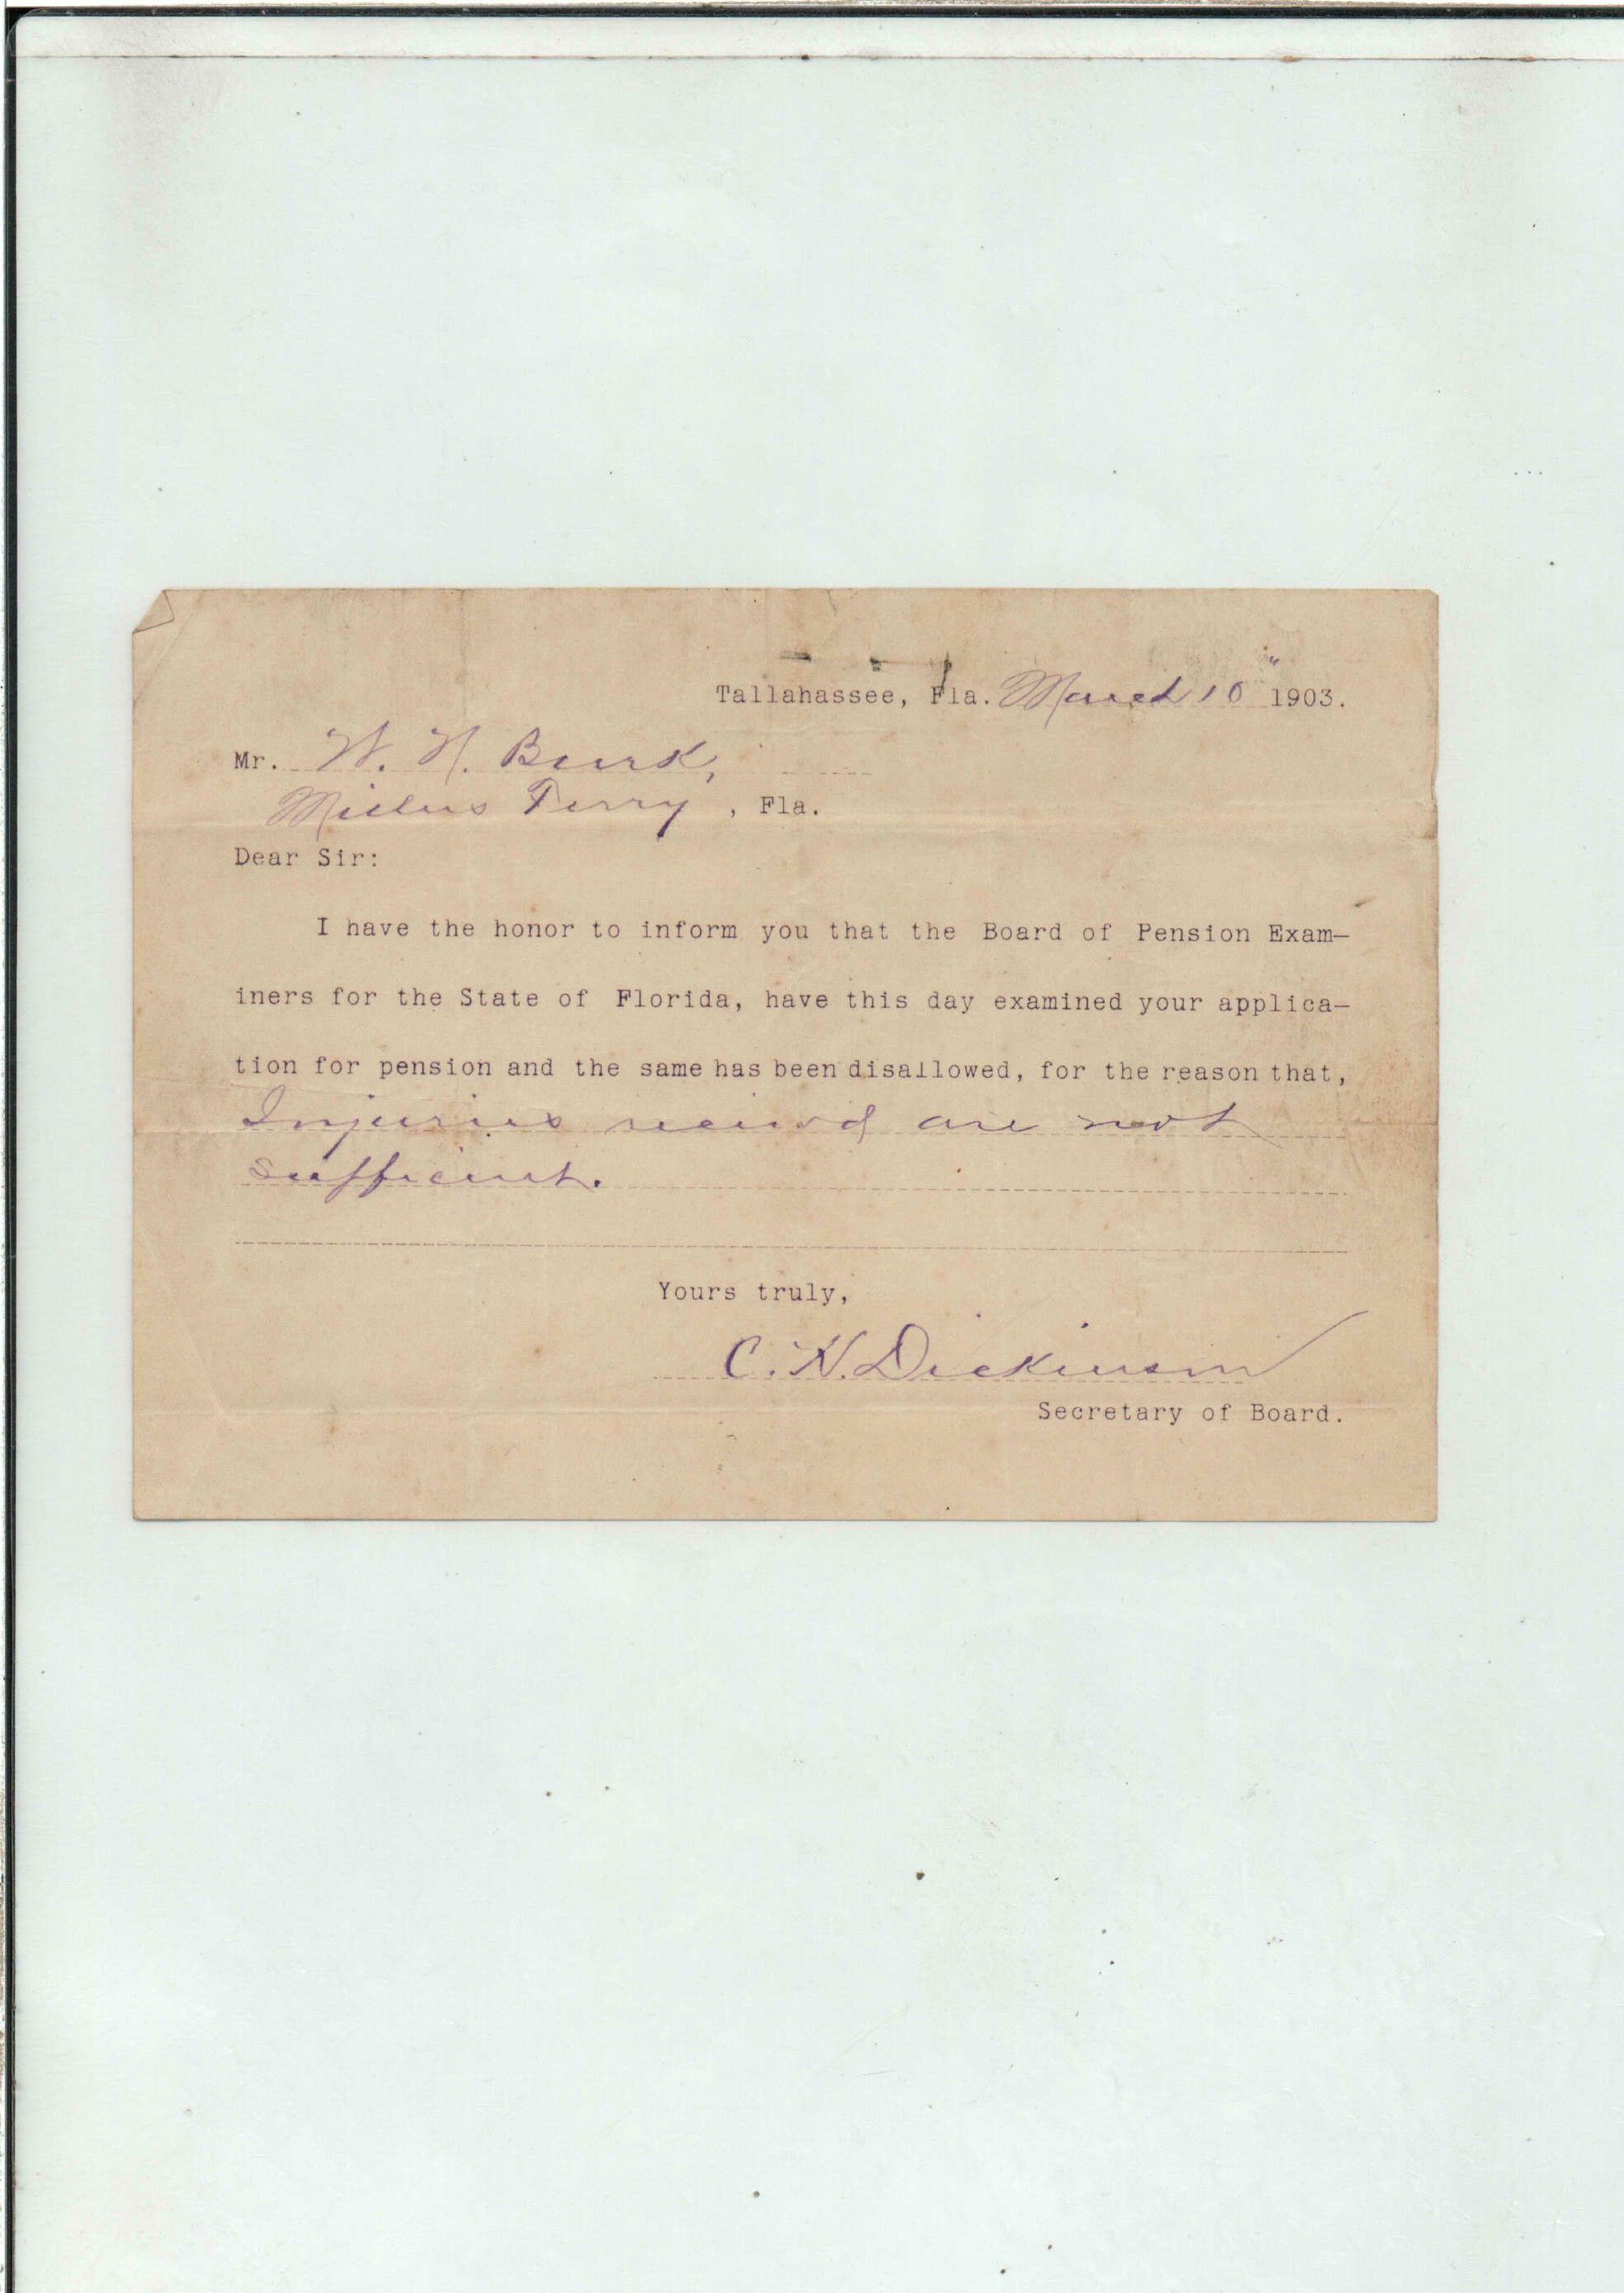 Tallahassee, Fla. March 10" 1903.
Mr. W. H. Burk,
Millers Ferry, Fla.
Dear Sir:
I have the honor to inform you that the Board of Pension Exam-
iners for the State of Florida, have this day examined your applica-
tion for pension and the same has been disallowed, for the reason that,
Injuries received are not
sufficient.
Yours truly,
C. H. Dickinson
Secretary of Board.